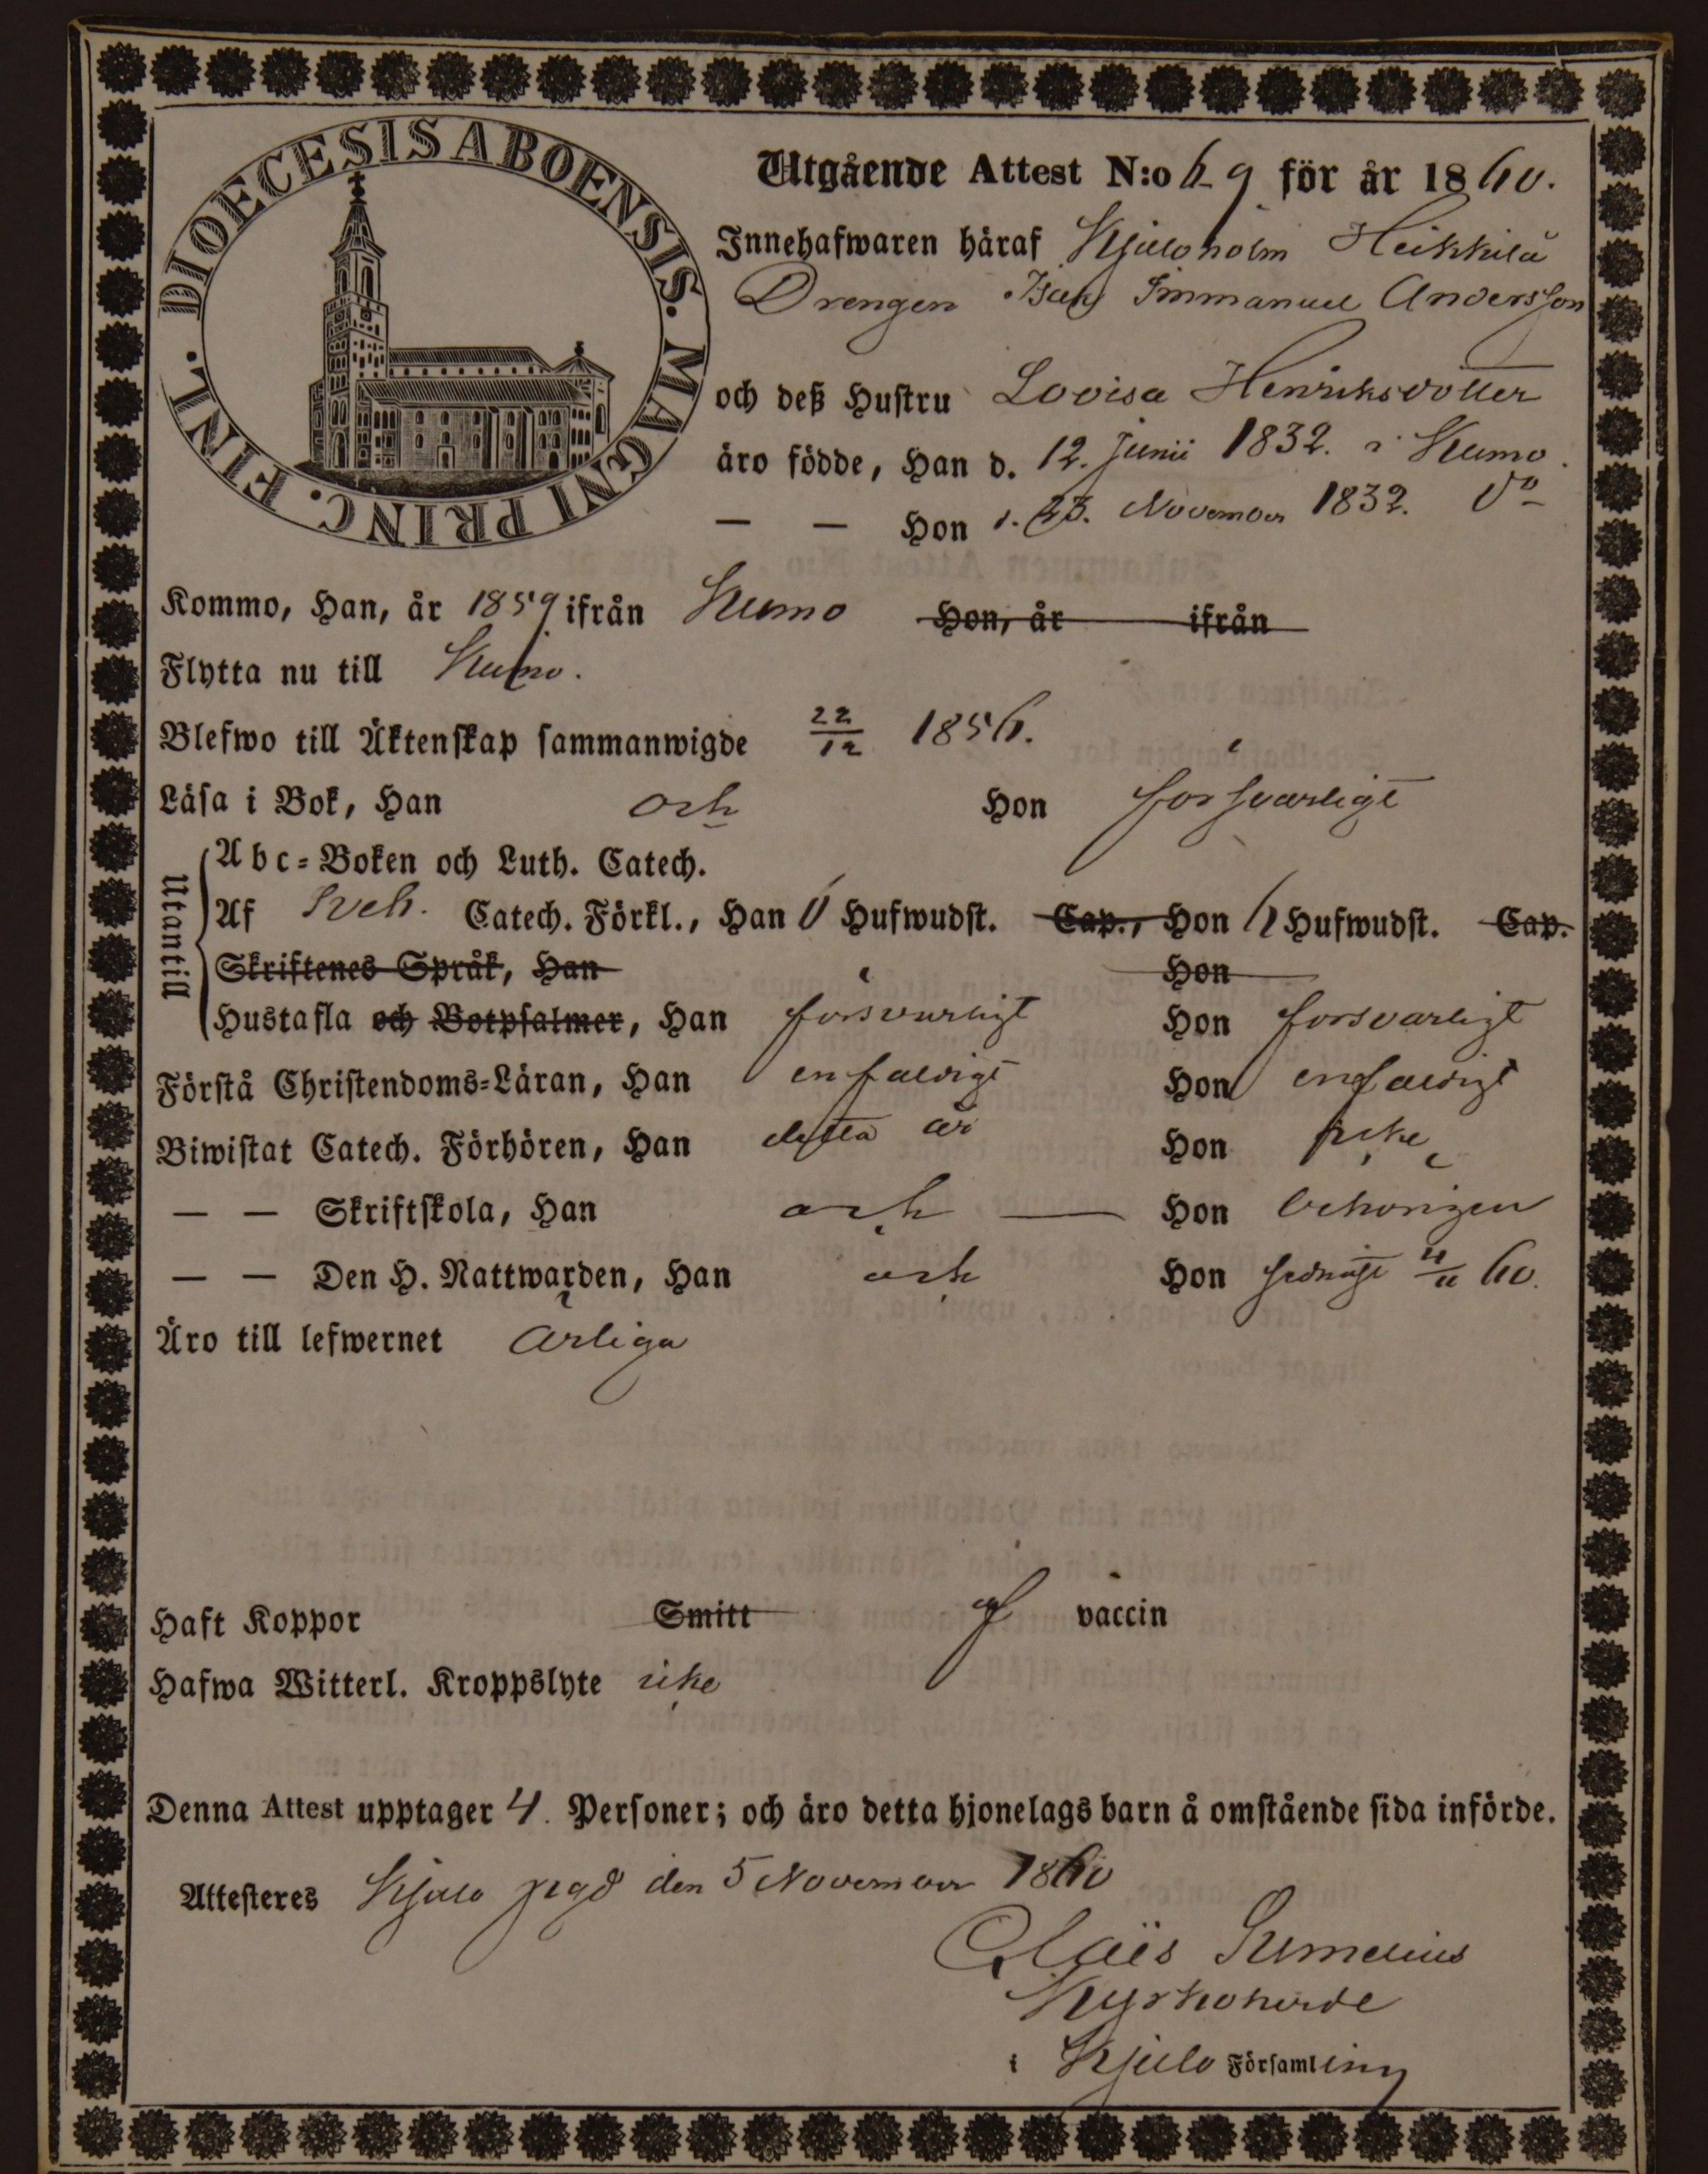 DIOECESIS ABOENSIS. MAGNI PRINC. FINL.
Utgående Attest N:o 69 för år 1860.
Innehafwaren häraf Kjuloholm Heikkilä
Drengen Isak Immanuel Andersson
och deß Hustru Lovisa Henriksdotter
äro födde, Han d. 12. Junii 1832. i Kumo.
— — Hon d. 23. November 1832. do
Kommo, Han, år 1859 ifrån Kumo Hon, år ifrån
Flytta nu till Kumo.
Blefwo till Äktenskap sammanwigde 22/12 1856.
Läsa i Bok, Han och Hon försvarligt
Utantill
Abc=Boken och Luth. Catech.
Af Sveb. Catech. Förkl., Han 6 Hufwudst. Cap., Hon 6 Hufwudst. Cap.
Skriftenes Språk, Han Hon
Hustafla och Botpsalmer, Han försvarligt Hon försvarligt
Förstå Christendoms=Läran, Han enfaldigt Hon enfaldigt
Biwistat Catech. Förhören, Han detta år Hon icke
— — Skriftskola, Han och — Hon behörigen
— — Den H. Nattwarden, Han och Hon sednast 4/11 60.
Äro till lefwernet ärliga
Haft Koppor Smitt vaccin
Hafwa Witterl. Kroppslyte icke
Denna Attest upptager 4. Personer; och äro detta hjonelags barn å omstående sida införde.
Attesteres Kjulo pgd den 5 November 1860
Claës Sumelius
Kyrkoherde
i Kjulo Församling